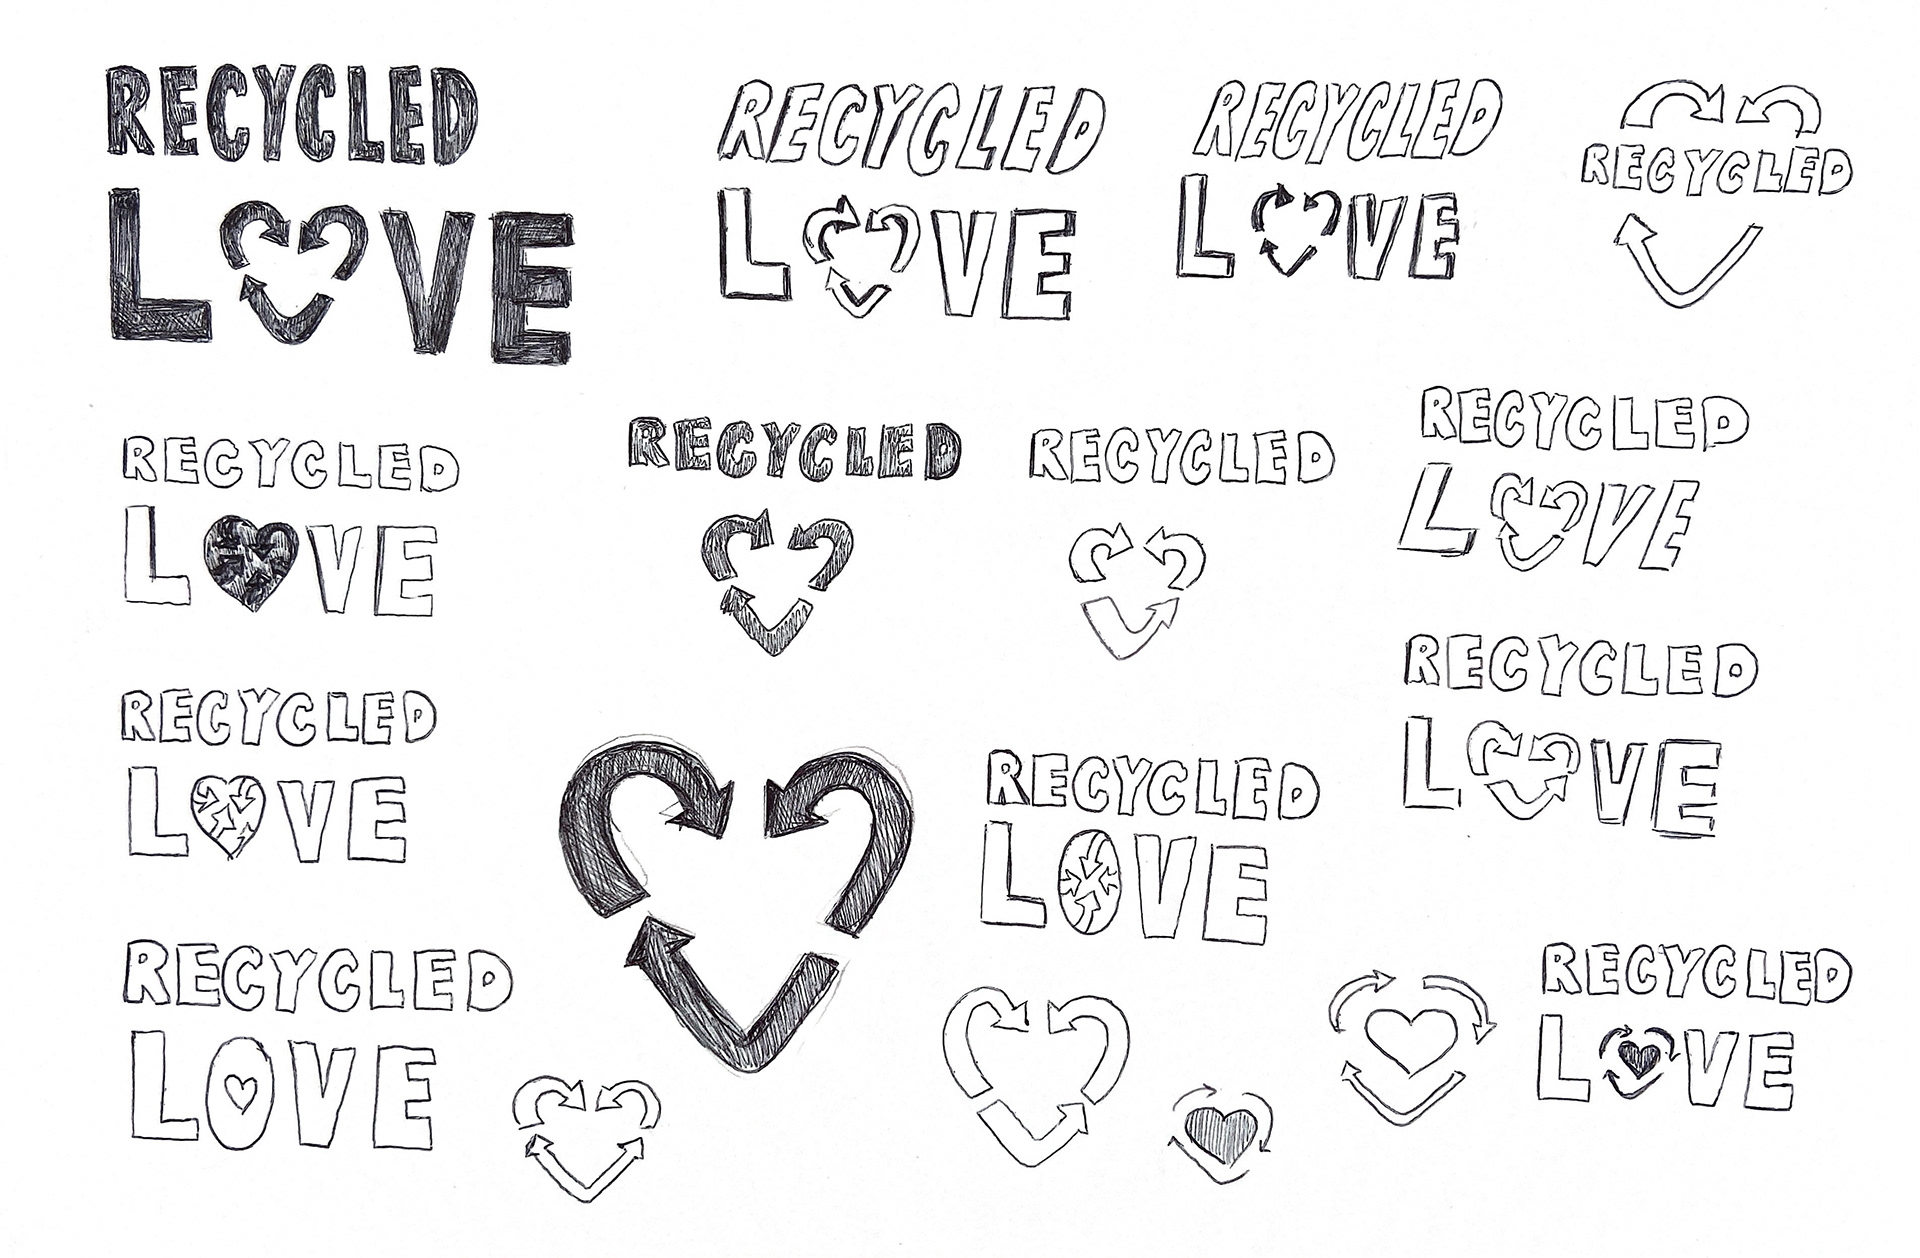 RECYCLED
LOVE
RECYCLED
LOVE
RECYCLED
LOVE
RECYCLED
RECYCLED
LOVE
RECYCLED
RECYCLED
RECYCLED
LOVE
RECYCLED
LOVE
RECYCLED
LOVE
RECYCLED
LOVE
RECYCLED
LOVE
RECYCLED
LOVE